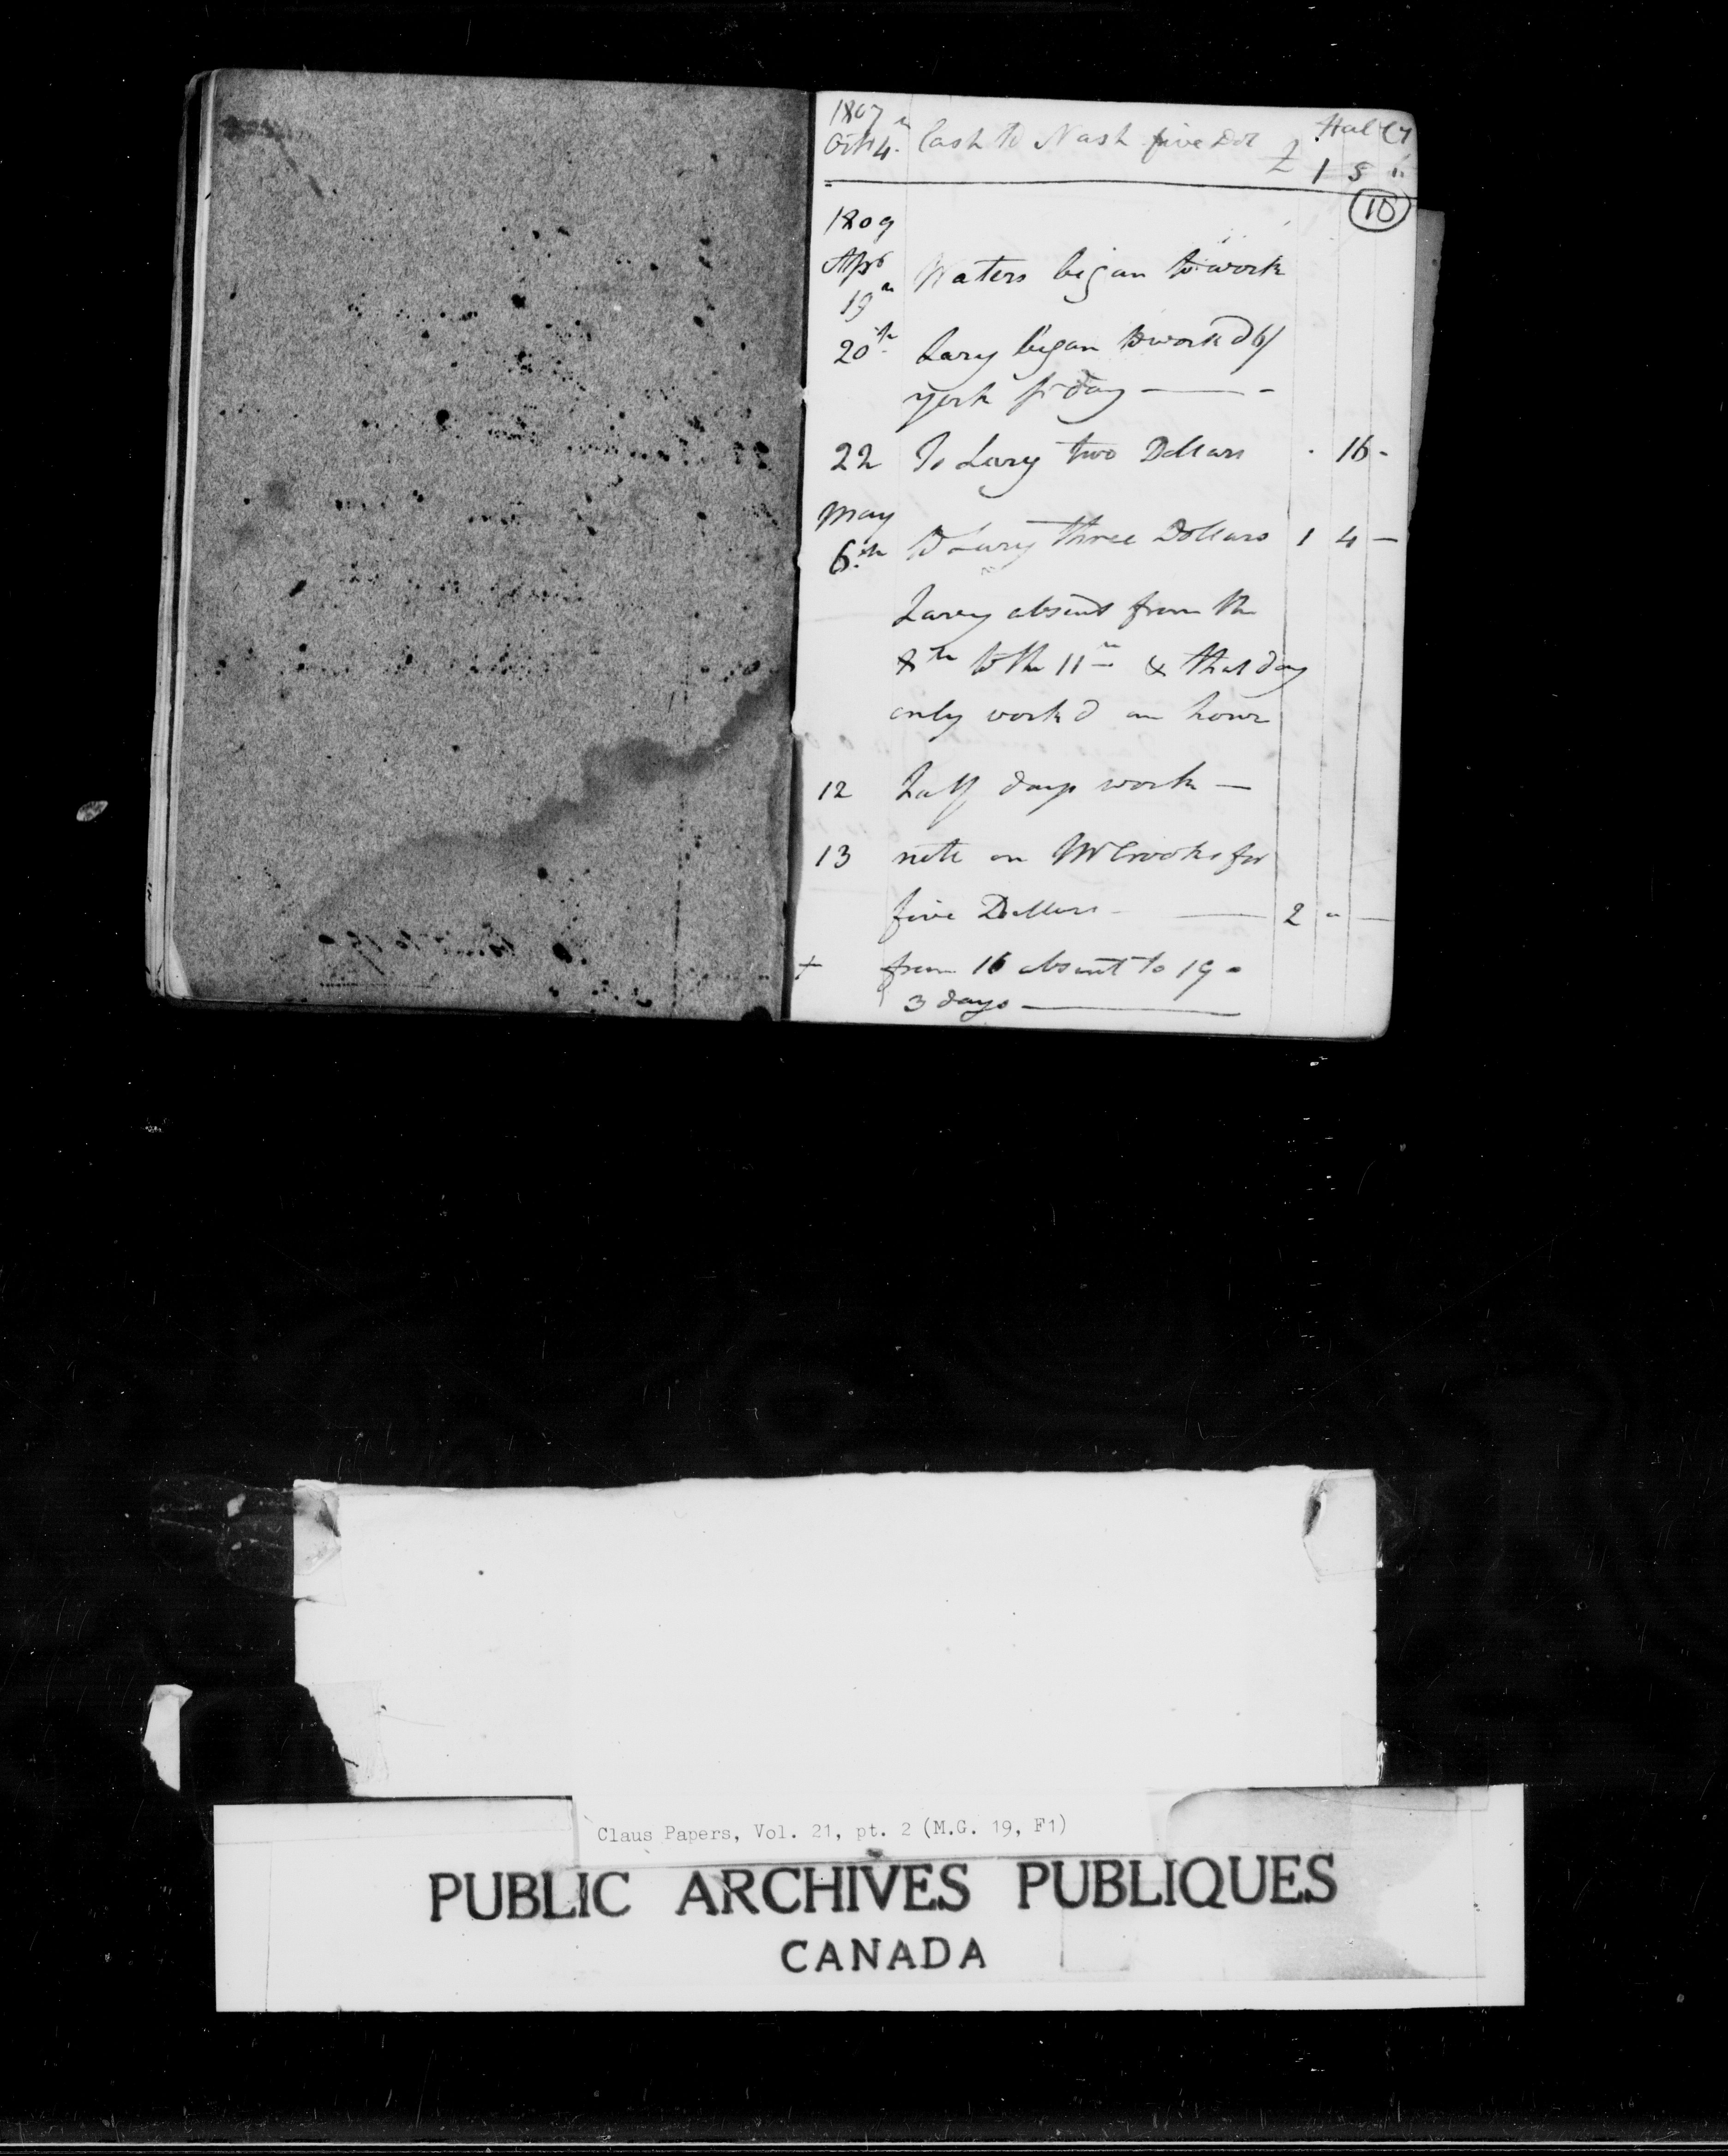 1807
Octr 4. Cash to Nash five Dol
Hal Cy
£ 1 5 "
10
1809
Apl 19th Waters began to work
20th Lary began to work @ 6/
york pr day — -
22 To Lary two Dollars · 16 -
May
6th to Lary three Dollars 1 4 —
Lary absent from the
8th to the 11th & that day
only work'd an hour
12 half days work —
13 note on Mr Crooks for
five Dollars — 2 " —
+ from 16 absent to 19 -
3 days —
Claus Papers, Vol. 21, pt. 2 (M.G. 19, F1)
PUBLIC ARCHIVES PUBLIQUES
CANADA